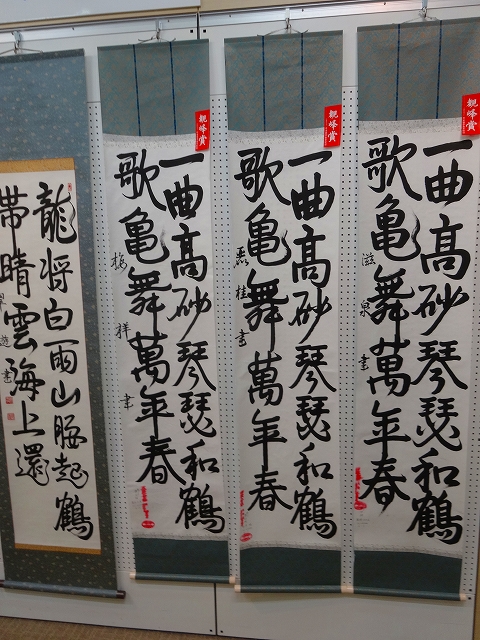 観峰賞
一曲高砂琴瑟和鶴
歌亀舞萬年春
滋泉書
観峰賞
一曲高砂琴瑟和鶴
歌亀舞萬年春
桂書
観峰賞
一曲高砂琴瑟和鶴
歌亀舞萬年春
梅祥書
龍将白雨山腰起鶴
帯晴雲海上還
遊書